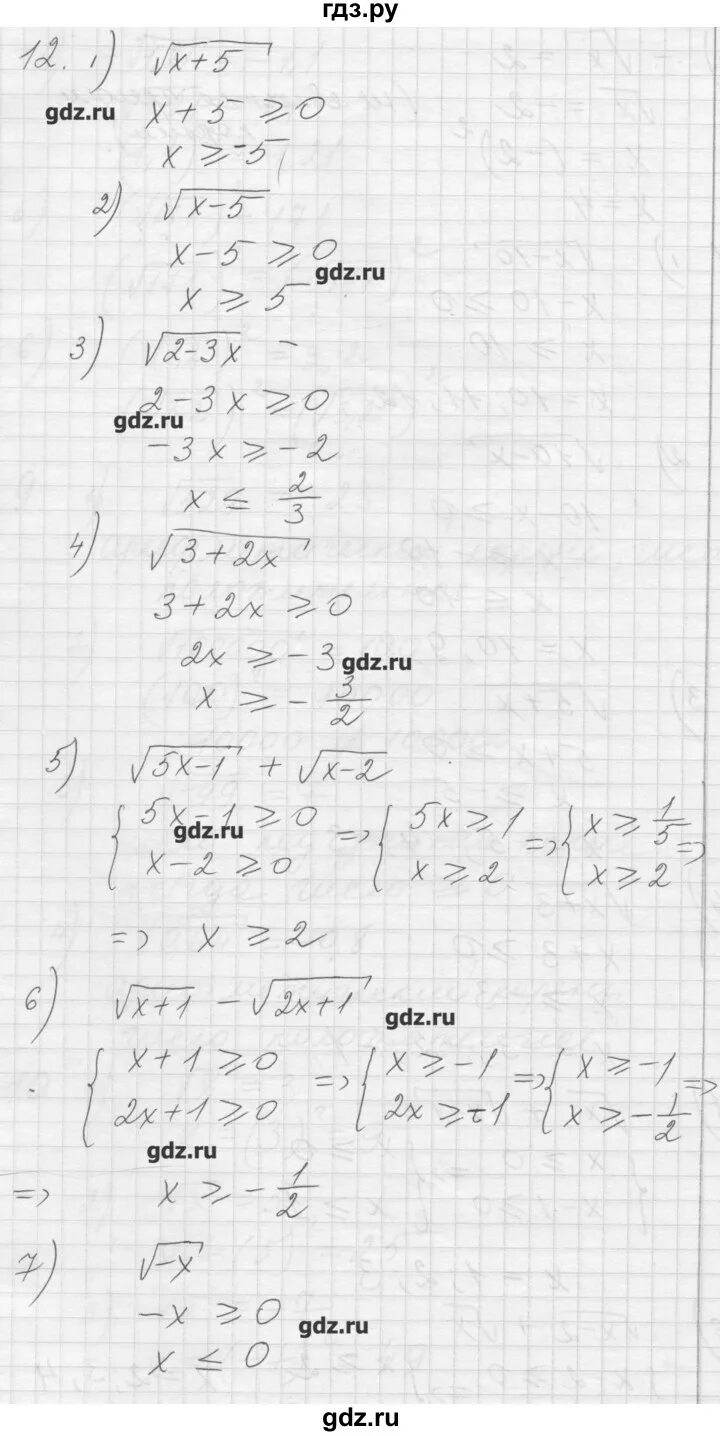 гдз.ру
12. 1) √(x+5)
gdz.ru x + 5 ⩾ 0
x ⩾ -5
2) √(x-5)
x-5 ⩾ 0
gdz.ru
x ⩾ 5
3) √(2-3x) -
2-3x ⩾ 0
gdz.ru
-3x ⩾ -2
x ≤ 2/3
4) √(3+2x)
3+2x ⩾ 0
2x ⩾ -3 gdz.ru
x ⩾ - 3/2
5) √(5x-1) + √(x-2)
{ 5x-1 ⩾ 0 => { 5x ⩾ 1 => { x ⩾ 1/5 =>
gdz.ru
x-2 ⩾ 0 x ⩾ 2 x ⩾ 2
=> x ⩾ 2
6) √(x+1) - √(2x+1)
gdz.ru
{ x+1 ⩾ 0 => { x ⩾ -1 => { x ⩾ -1 =>
2x+1 ⩾ 0 2x ⩾ -1 x ⩾ - 1/2
gdz.ru
=> x ⩾ - 1/2
7) √(-x)
-x ⩾ 0 gdz.ru
x ≤ 0
gdz.ru